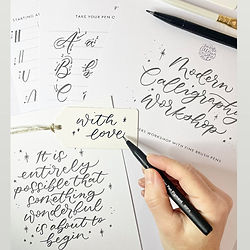 STARTING AT
TAKE YOUR PEN O
A a
B b
C
Modern
Calligraphy
Workshop
with
love
It is
entirely
possible that
something
wonderful
is about to
begin